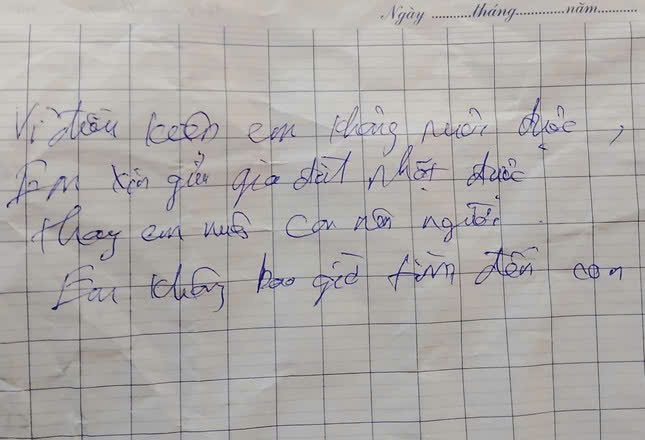 Ngày ..........tháng..............năm...........
Vì điều kiện em không nuôi được,
Em xin gửi gia đìl nhặt được
thay em nuôi con nên người.
Em không bao giờ tìm đến con